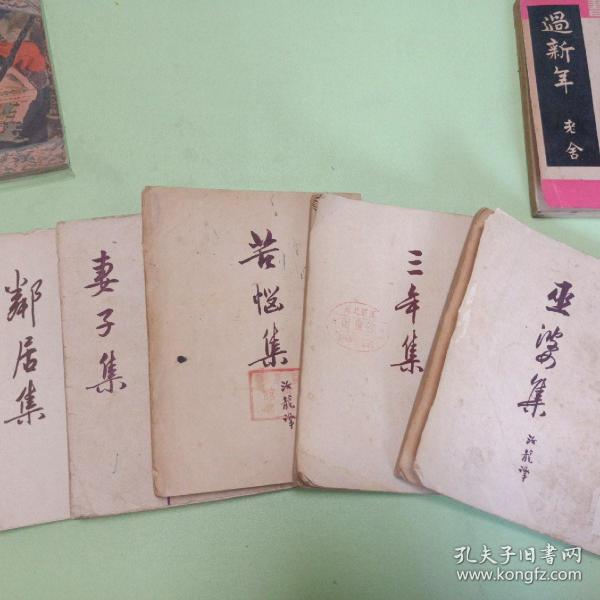 過新年
老舍
鄰居集
妻子集
苦惱集
汝龍譯
三年集
巫婆集
汝龍譯
孔夫子旧书网
www.kongfz.com